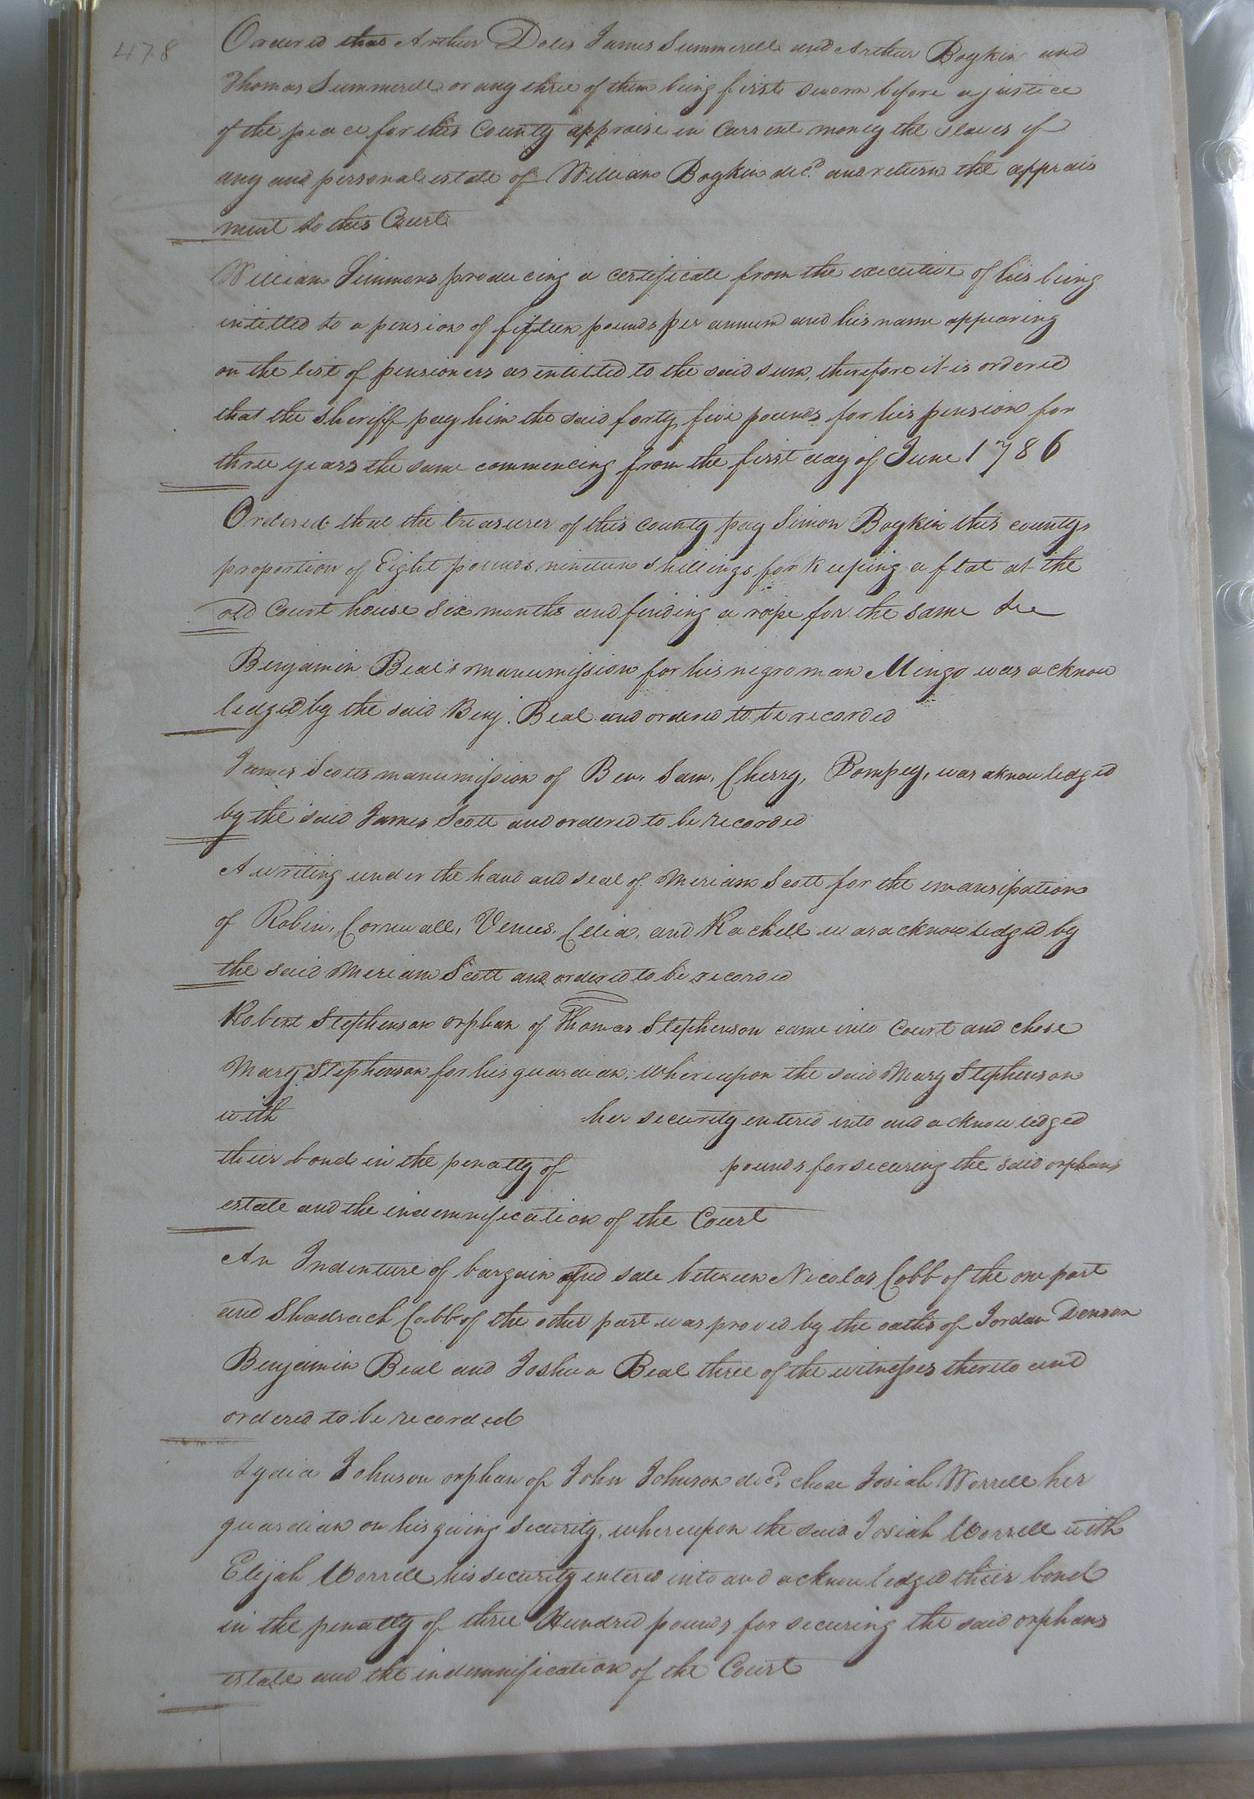 478
Ordered that Arthur Doles James Summerell and Arthur Boykin and
Thomas Summerell or any three of them being first sworn before a justice
of the peace for this County appraise in Current money the slaves if
any and personal estate of William Boykin decd. and return the apprais
ment to this Court
William Simmons producing a certificate from the executive of his being
intitled to a pension of fifteen pounds per annum and his name appearing
on the list of pensioners as intitled to the said sum, therefore it is ordered
that the Sheriff pay him the said forty five pounds for his pension for
three years the same commencing from the first day of June 1786
Ordered that the treasurer of this county pay Simon Boykin this countys
proportion of Eight pounds nineteen shillings for keeping a flat at the
old Court house six months and finding a rope for the same &c
Benjamin Beal's manumission for his negro man Mingo was acknow
ledged by the said Benj. Beal and ordered to be recorded
James Scotts manumission of Ben, Sam, Cherry, Pompey, was aknowledged
by the said James Scott and ordered to be recorded
A writing under the hand and seal of Meriam Scott for the emansipation
of Robin, Cornwall, Venus, Celia, and Rachell was acknowledged by
the said Meriam Scott and ordered to be recorded
Robert Stephenson orphan of Thomas Stephenson came into Court and chose
Mary Stephenson for his guardian, whereupon the said Mary Stephenson
with her security entered into and acknowledged
their bond in the penalty of pounds for securing the said orphans
estate and the indemnification of the Court
An Indenture of bargain and sale between Nicolas Cobb of the one part
and Shadrach Cobb of the other part was proved by the oaths of Jordan Denson
Benjamin Beal and Joshua Beal three of the witnesses thereto and
ordered to be recorded
Lydia Johnson orphan of John Johnson decd. chose Josiah Worrell her
guardian on his giving security, whereupon the said Josiah Worrell with
Elijah Worrell his security entered into and acknowledged their bond
in the penalty of three Hundred pounds for securing the said orphans
estate and the indemnification of the Court